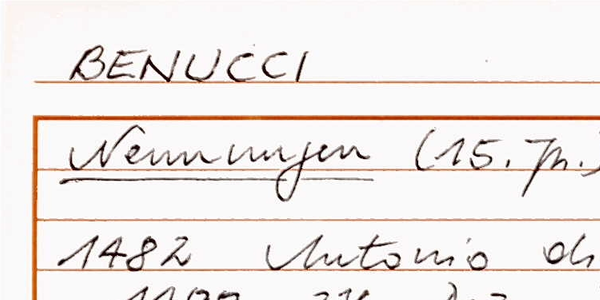 BENUCCI
Nennungen (15. Jh.)
1482 Antonio di